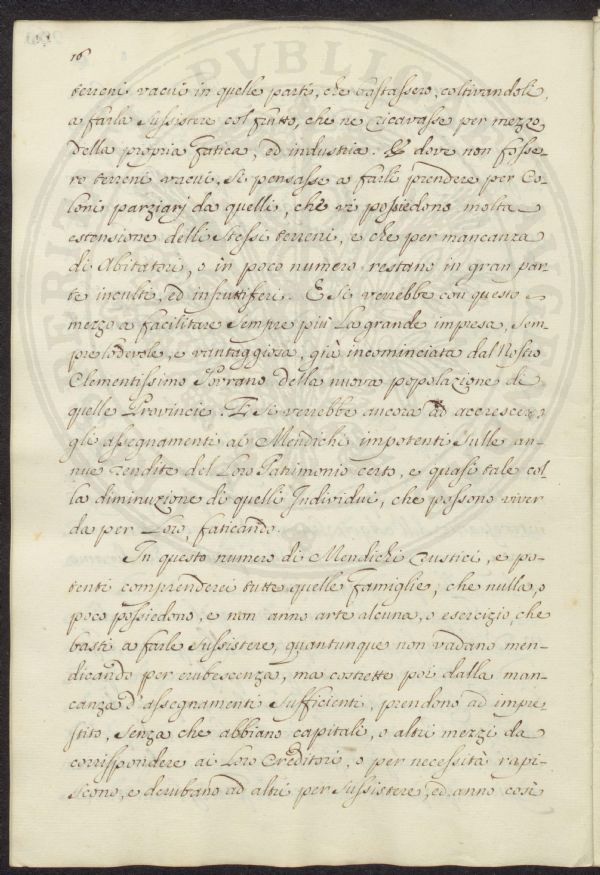 16
terreni vacui in quelle parti, che bastassero, coltivandoli,
a farla sussistere col frutto, che ne ricavasse per mezzo
della propria fatica, ed industria. E dove non fosse-
ro terreni vacui, si pensasse a farli prendere per Co-
loni parziarj da quelli, che vi possiedono molta
estensione delli stessi terreni, e che per mancanza
di Abitatori, o in poco numero restano in gran par-
te inculti, ed infruttiferi. E si verrebbe con questo
mezzo a facilitare sempre più la grande impresa, sem-
pre lodevole, e vantaggiosa, già incominciata dal Nostro
Clementissimo Sovrano della nuova popolazione di
quelle Provincie. E si verrebbe ancora ad accrescere
gli assegnamenti ai Mendichi impotenti sulle an-
nue rendite del Loro Patrimonio certo, e quasi tale col-
la diminuzione di quelli Individui, che possono viver
da per Loro, faticando.
In questo numero di Mendichi rustici, e po-
tenti comprenderei tutte quelle famiglie, che nulla, o
poco possiedono, e non anno arte alcuna, o esercizio, che
basti a farle sussistere, quantunque non vadano men-
dicando per erubescenza, ma costrette poi dalla man-
canza d'assegnamenti sufficienti, prendono ad impre-
stito, senza che abbiano capitali, o altri mezzi da
corrispondere ai Loro Creditori, o per necessità rapi-
scono, e derubano ad altri per sussistere, ed anno così